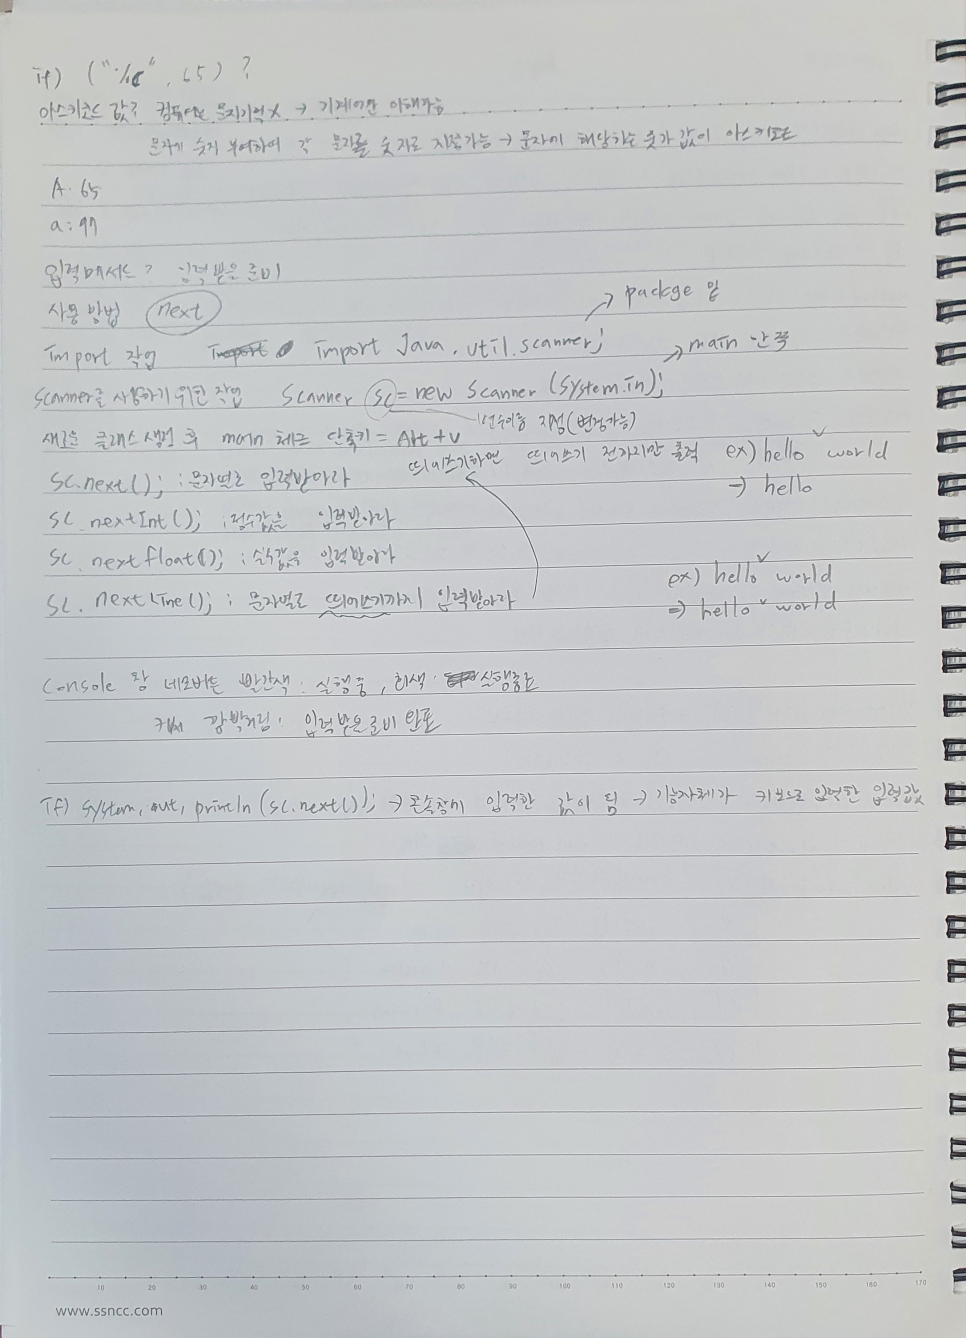 If) ("%c", 65) ?
아스키코드 값? 컴퓨터는 문자기억X → 기계어만 이해가능
문자에 숫자 부여하여 각 문자를 숫자로 지정가능 → 문자에 해당하는 숫자 값이 아스키코드
A. 65
a : 97
입력메서드? 입력받을 준비
사용 방법 next
→ packge 밑
Import 작업 Import Java.util.scanner;
→ main 안쪽
Scanner를 사용하기 위한 작업 Scanner sc = new Scanner (System.in);
변수이름 지정(변경가능)
새로운 클래스 생성 후 main 체크 단축키 = Alt + v
띄어쓰기하면 띄어쓰기 전까지만 출력 ex) hello world
sc.next(); : 문자열로 입력받아라
→ hello
sc.nextInt(); : 정수값을 입력받아라
sc.nextfloat(); : 실수값을 입력받아라
ex) hello world
sc.nextLine(); : 문자열로 띄어쓰기까지 입력받아라
⇒ hello world
Console 창 네모버튼 빨간색 : 실행중, 회색 : 실행종료
커서 깜박거림 : 입력받을 준비 완료
If) System.out,println(sc.next()); → 콘솔창에 입력한 값이 됨 → 기능자체가 키보드로 입력한 입력값
10 20 30 40 50 60 70 80 90 100 110 120 130 140 150 160 170
www.ssncc.com